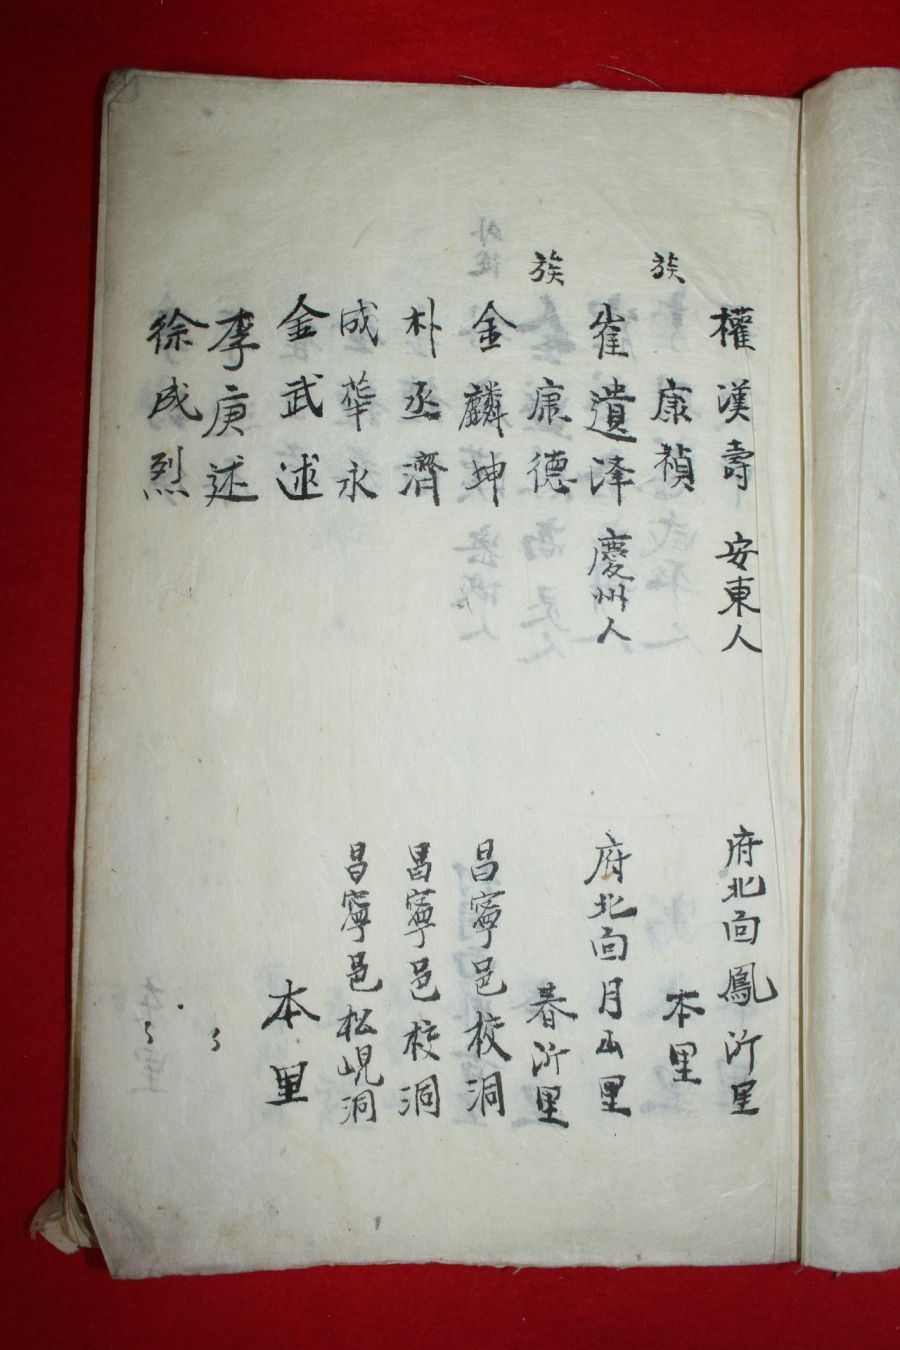 權漢壽 安東人 府北面鳳沂里
族 康禎 本里
崔遺泽 慶州人 府北面月山里
族 康德 春沂里
金麟坤 昌寧邑校洞
朴丞濟 昌寧邑校洞
成華永 昌寧邑松峴洞
金武述 本里
李庚述 〻
徐成烈 〻